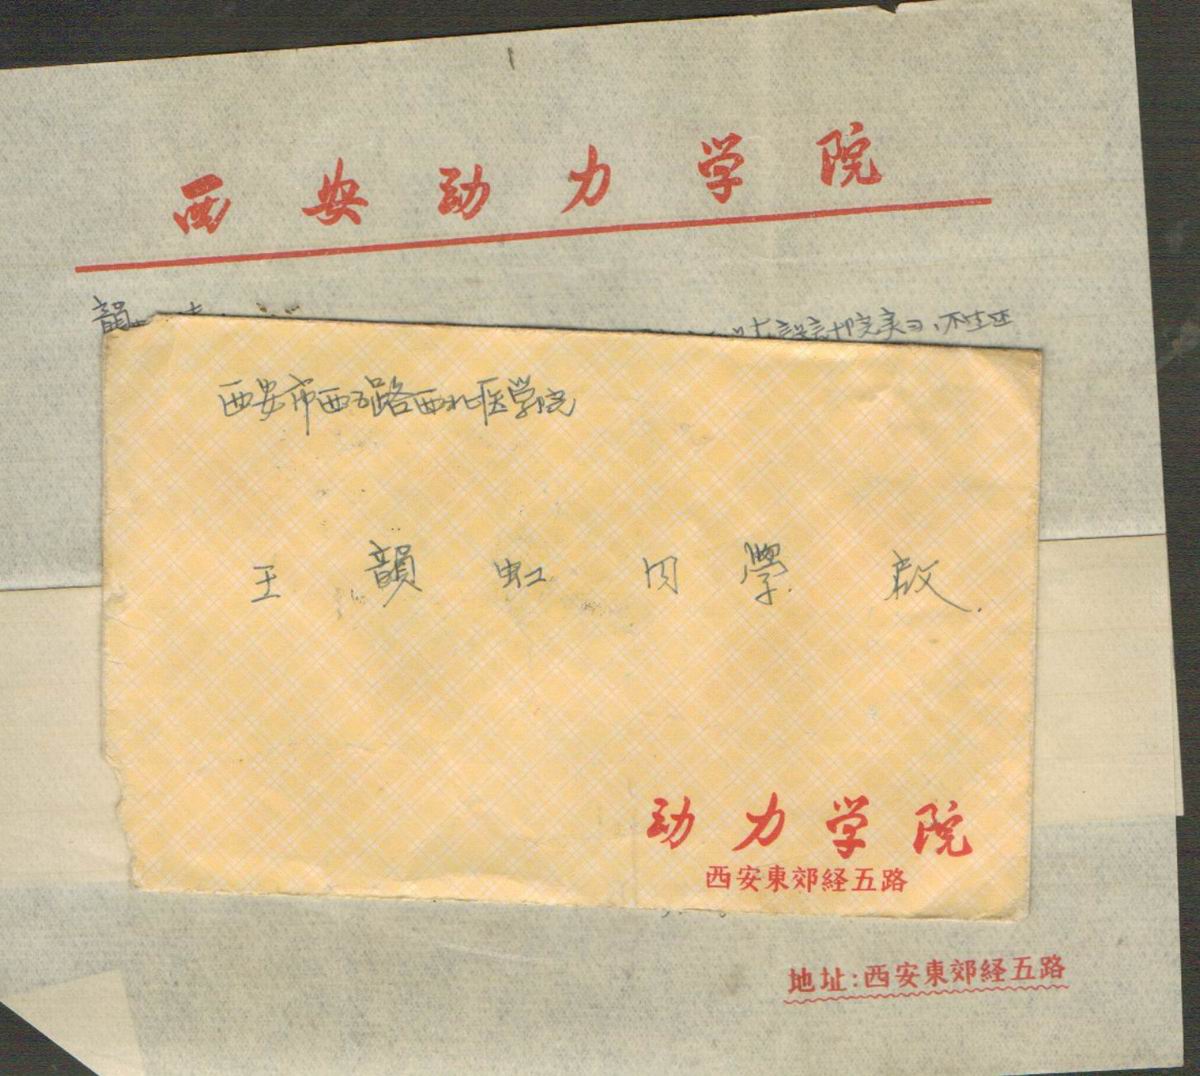 西安动力学院
韻
設計院実习,
西安市西五路西北医学院
王韻虹同學啟.
动力学院
西安東郊経五路
地址:西安東郊経五路